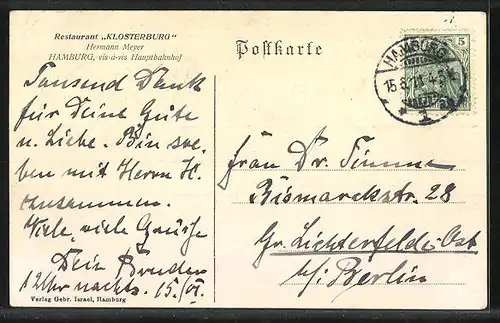 Restaurant „KLOSTERBURG“
Hermann Meyer
HAMBURG, vis-à-vis Hauptbahnhof
Postkarte
5
HAMBURG
1
Tausend Dank
für Deine Güte
u. Liebe. Bin soe-
ben mit Herrn H.
zusammen.
Viele, viele Grüsse
Dein Bruder
12 Uhr nachts. 15./VI.
Frau Dr. Timme
Bismarckstr. 28
Gr. Lichterfelde-Ost
b/. Berlin
Verlag Gebr. Israel, Hamburg